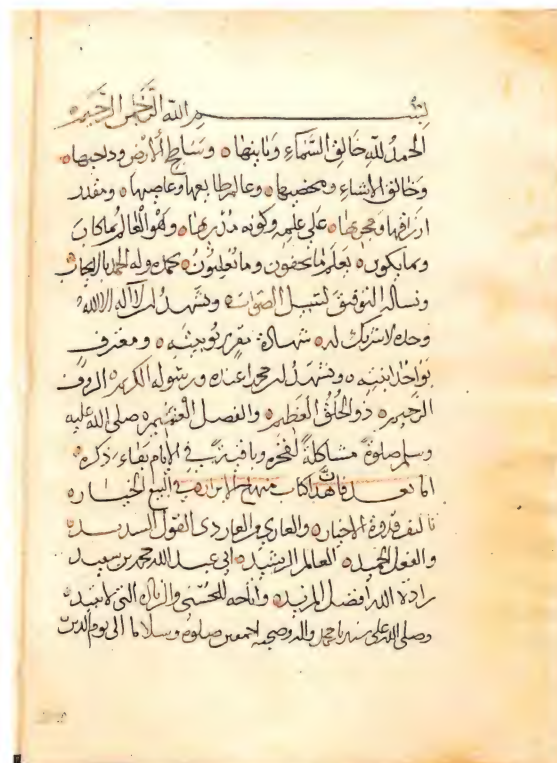 بسم الله الرحمن الرحيم
الحمد لله خالق السماء وبانيها وساطح الأرض وداحيها
وخالق الاشياء ومحصيها وعالم طايعها وعاصيها ومقدر
ارزاقها ومجريها على علمه وكونه مدبرها وهو العالم بما كان
وبما يكون يعلم ما يخفون وما يعلنون نحمده وله الحمد بالايجاب
ونساله التوفيق لسبيل الصواب ونشهد ان لا اله الا الله
وحده لا شريك له شهادة مقر بربوبيته ومعترف
بواحدانيته ونشهد ان محمدا عبده ورسوله الكريم الروف
الرحيم ذو الخلق العظيم والفضل العميم صلى الله عليه
وسلم صلوة مشاكلة لفخره وباقية في الايام بقاء ذكره
اما بعد فان هذا كتاب منهاج في البيع
تاليف قدوة الاخيار القول السديد
والفعل الحميد العالم الرشيد ابي عبد الله محمد بن سعيد
زاده الله افضل المزيد واتاحه للحسنى والزيادة التي لا تبيد
وصلى الله على سيدنا محمد واله وصحبه اجمعين صلوة وسلاما الى يوم الدين